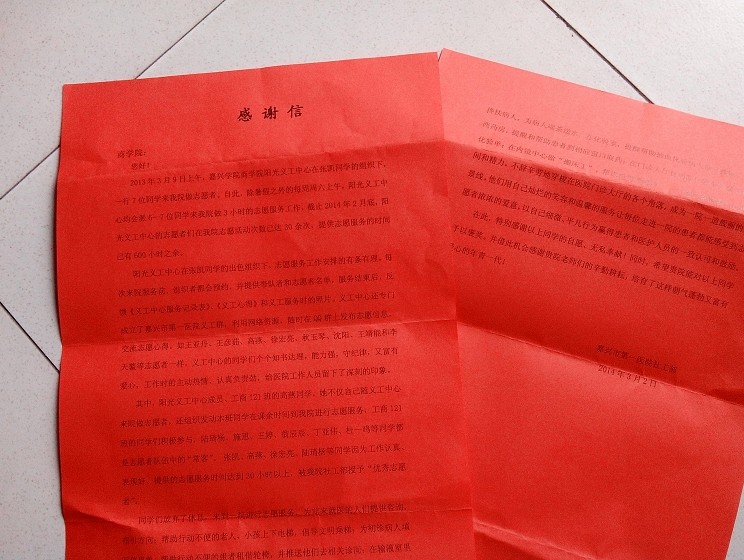 感谢信
商学院：
您好！
2013年3月9日上午，嘉兴学院商学院阳光义工中心在张凯同学的组织下，
一行7位同学来我院做志愿者。自此，除暑假之外的每周周六上午，阳光义工中
心均会派6-7位同学来院做3小时的志愿服务工作。截止2014年2月底，阳
光义工中心的志愿者们在我院志愿活动次数已达30余次，提供志愿服务的时间
已有600小时之余。
阳光义工中心在张凯同学的出色组织下，志愿服务工作安排的有条有理。每
次来院服务前，组织者都会预约，并提供带队者和志愿者名单。服务结束后，反
馈《义工中心服务记录表》、《义工心得》和义工服务时的照片。义工中心还专门
成立了嘉兴市第一医院义工群，利用网络资源，随时在QQ群上发布志愿信息，
交流志愿心得。如王亚丹、王彦茹、高殊、徐宏亮、沈阳、王婧能和李
天蔓等志愿者一样，义工中心的同学们个个知书达理，能力强，守纪律，又富有
爱心，工作时的主动热情、认真负责劲，给医院工作人员留下了深刻的印象。
其中，阳光义工中心成员、工商121班的高殊同学，她不仅自己随义工中心
来院做志愿者，还组织发动本班同学在课余时间到我院进行志愿服务。工商121
班的同学们积极参与，陆琦杨、陈思、王婷、丁亚伟、杜一鸣等同学都
是志愿者队伍中的“常客”。张凯、高殊、徐宏亮、陆琦杨等同学因为工作认真、
表现好，提供的志愿服务时间达到20小时以上，被我院社工部授予“优秀志愿
者”。
同学们放弃了休息，来到一院进行志愿服务，为前来就医的人们提供咨询，
指引方向；帮助行动不便的老人、小孩上下电梯，倡导文明乘梯；为初诊病人填
帮助行动不便的患者租借轮椅，并推送他们去相关诊间；在输液室里
间和精力，不辞辛劳地穿梭在医院门诊大厅的各个角落，成为一院一道绚丽的
景线。他们用自己灿烂的笑容和温馨的服务让每位走进一院的患者都能感受到志
愿者浓浓的爱意，以自己的言行赢得患者和医护人员的一致认可和鼓励。
在此，特别感谢以上同学的自愿、无私奉献！同时，希望贵院能对以上同学
予以褒奖，并借此机会感谢贵院老师们的辛勤耕耘，培育了这样朝气蓬勃又富有
心的年青一代！
嘉兴市第一医院社工部
2014年3月2日